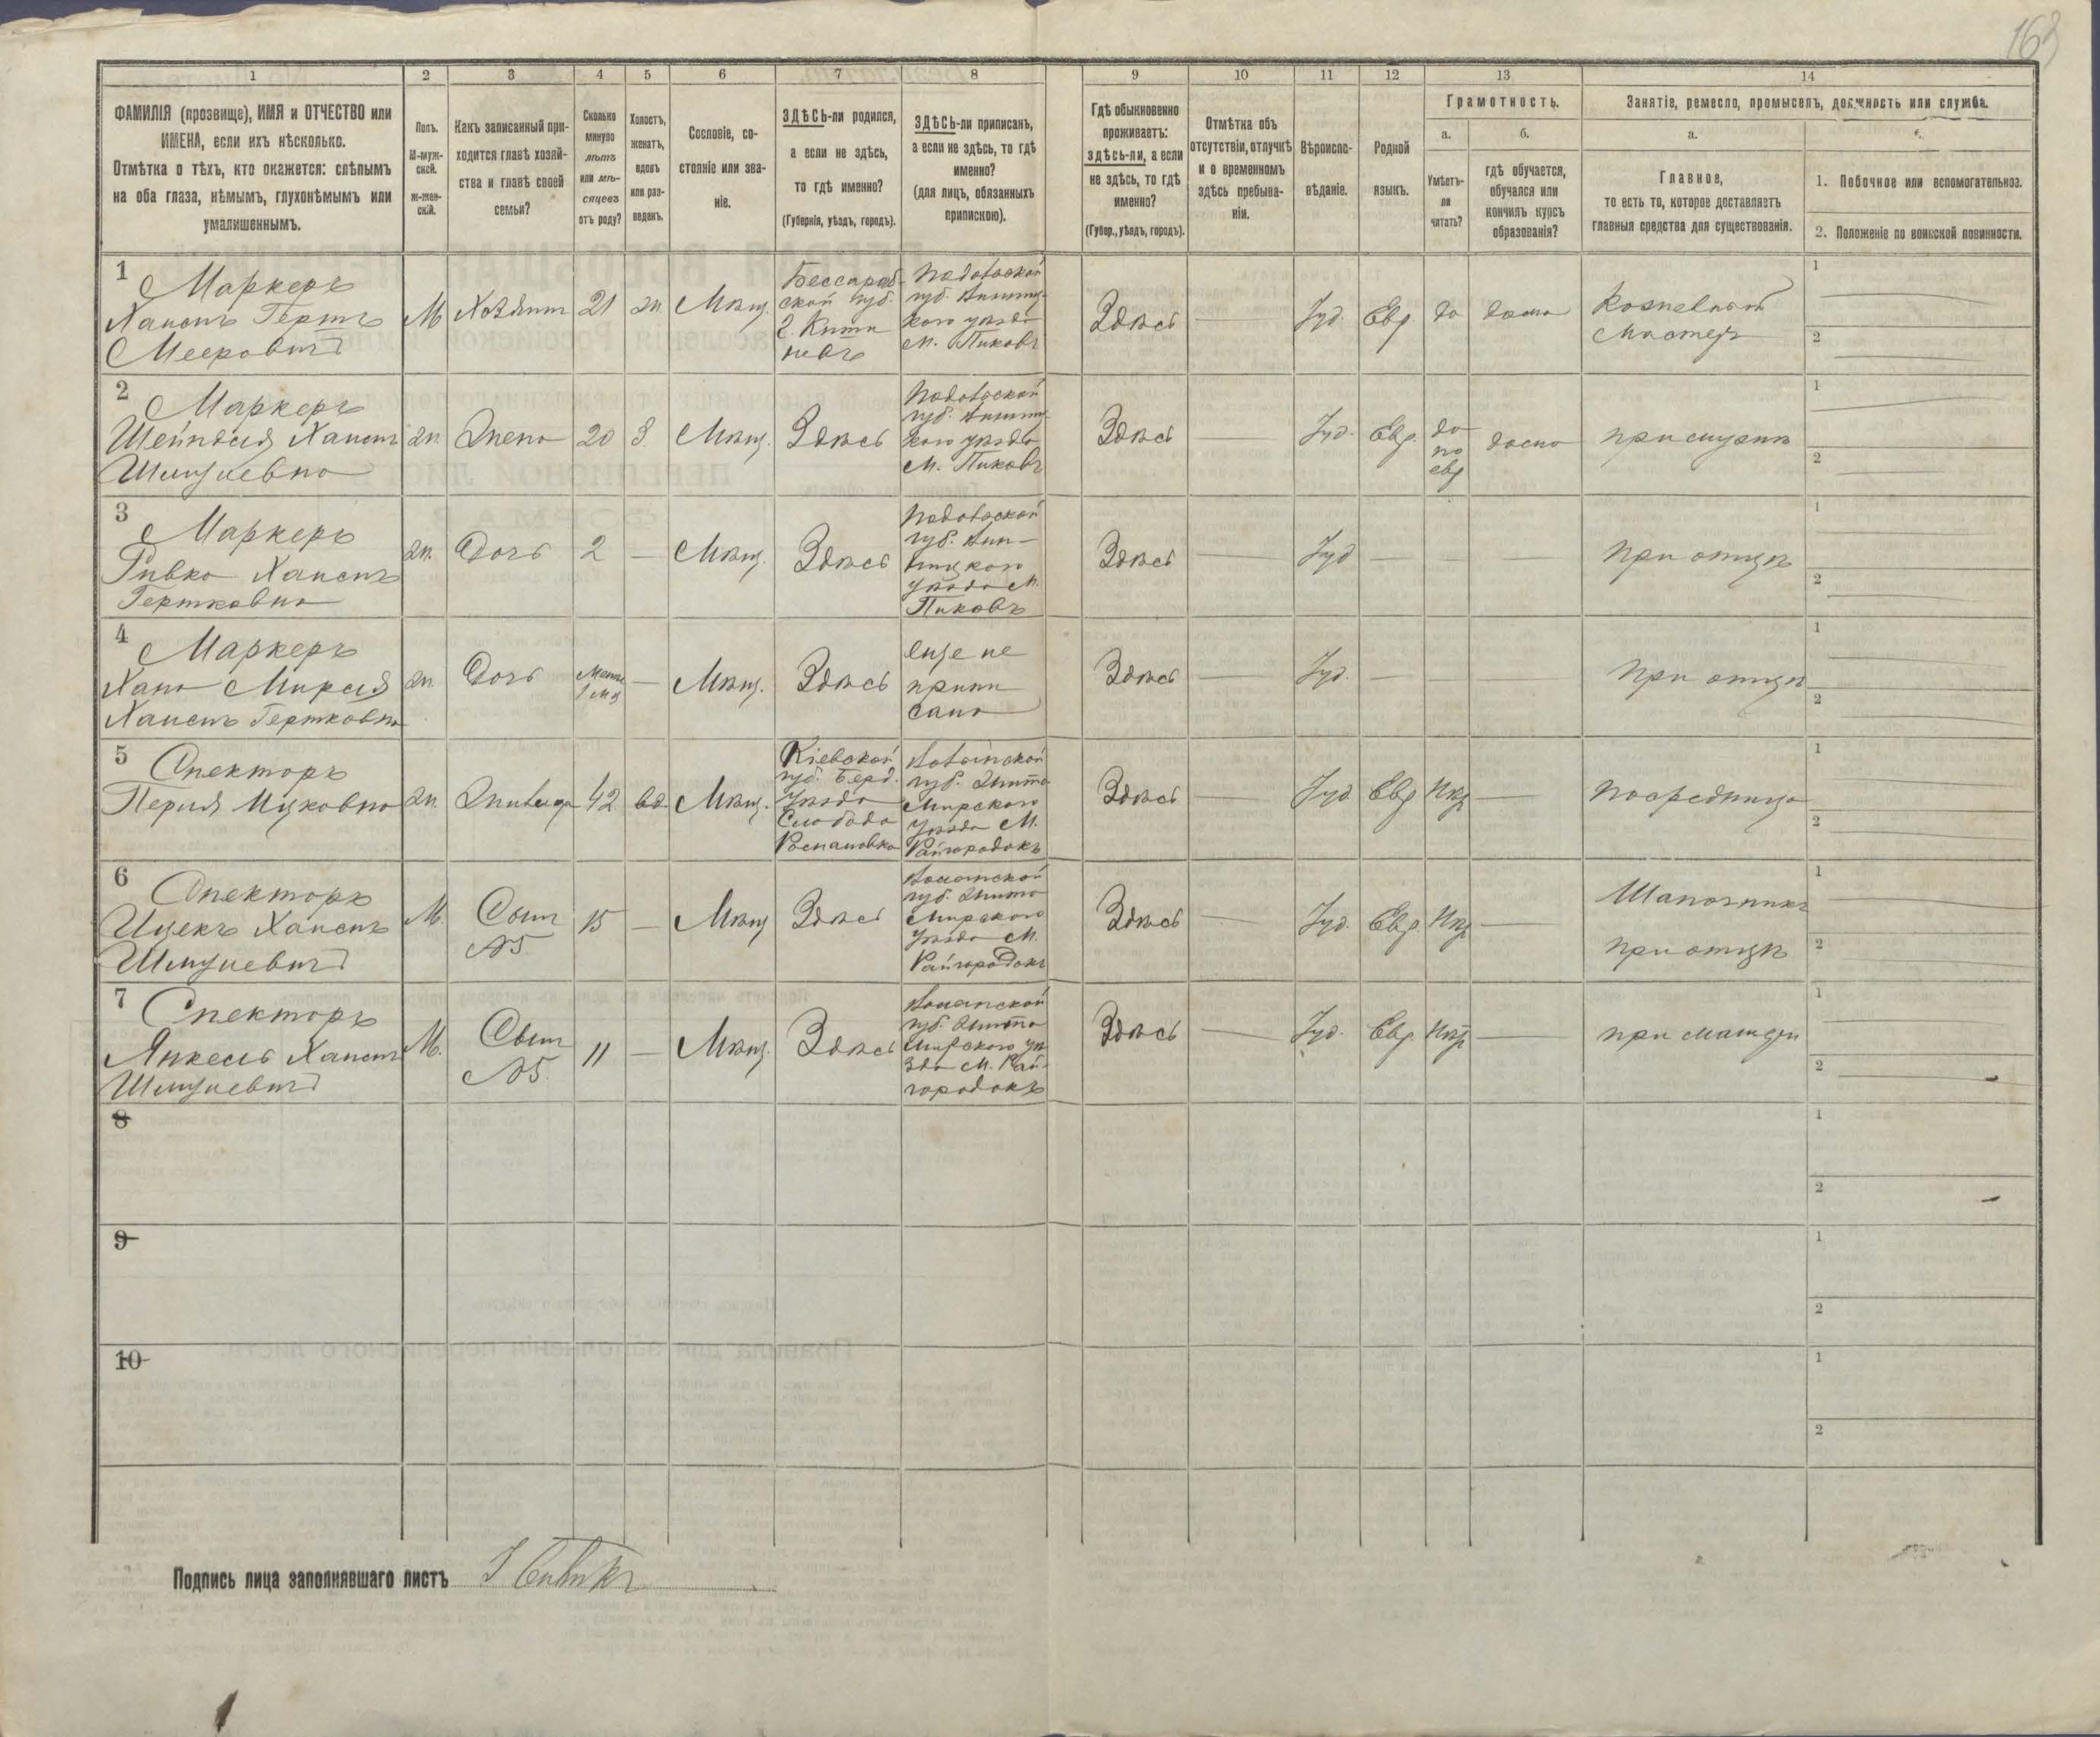 168
1 2 3 4 5 6 7 8 9 10 11 12 13 14
ФАМИЛІЯ (прозвище), ИМЯ и ОТЧЕСТВО или
ИМЕНА, если ихъ нѣсколько.
Отмѣтка о тѣхъ, кто окажется: слѣпымъ
на оба глаза, нѣмымъ, глухонѣмымъ или
умалишеннымъ.
Полъ.
М-муж-
ской.
Ж-жен-
скій.
Какъ записанный при-
ходится главѣ хозяй-
ства и главѣ своей
семьи?
Сколько
минуло
лѣтъ
или мѣ-
сяцевъ
отъ роду?
Холостъ,
женатъ,
вдовъ
или раз-
веденъ.
Сословіе, со-
стояніе или зва-
ніе.
ЗДѢСЬ-ли родился,
а если не здѣсь,
то гдѣ именно?
(Губернія, уѣздъ, городъ).
ЗДѢСЬ-ли приписанъ,
а если не здѣсь, то гдѣ
именно?
(для лицъ, обязанныхъ
припискою).
Гдѣ обыкновенно
проживаетъ:
здѣсь-ли, а если
не здѣсь, то гдѣ
именно?
(Губер., уѣздъ, городъ).
Отмѣтка объ
отсутствіи, отлучкѣ
и о временномъ
здѣсь пребыва-
ніи.
Вѣроиспо-
вѣданіе.
Родной
языкъ.
Грамотность.
а.
Умѣетъ-
ли
читать?
б.
гдѣ обучается,
обучался или
кончилъ курсъ
образованія?
Занятіе, ремесло, промыселъ, должность или служба.
а.
Главное,
то есть то, которое доставляетъ
главныя средства для существованія.
1. Побочное или вспомогательное.
2. Положеніе по воинской повинности.
1
Маркеръ
Хаимъ Гершъ
Мееровичъ
М
Хозяинъ
21
ж.
Мѣщ.
Бессараб-
ской губ.
г. Киши
невъ
Подольской
губ. Винниц-
кого уѣзда
м. Пиковъ
Здѣсь
Іуд.
Евр.
да
дома
мастеръ
1
2
2
Маркеръ
Шейндля Хаимъ
Шмулевна
ж.
Жена
20
З.
Мѣщ.
Здѣсь
Подольской
губ. Винниц-
кого уѣзда
м. Пиковъ
Здѣсь
Іуд.
Евр.
да
по
евр
дома
при мужѣ
1
2
3
Маркеръ
Ривка Хаимъ
Гершковна
ж.
Дочь
2
—
Мѣщ.
Здѣсь
Подольской
губ. Вин-
ницкого
уѣзда м.
Пиковъ
Здѣсь
Іуд
при отцѣ
1
2
4
Маркеръ
Хана Мирля
Хаимъ Гершковна
ж.
Дочь
Менѣе
1 мѣ
—
Мѣщ.
Здѣсь
еще не
припи
сана
Здѣсь
Іуд.
При отцѣ
1
2
5
Спекторъ
Перля Ицковна
ж.
42
вд.
Мѣщ.
Кіевской
губ. Берд.
уѣзда
Слобода
Романовка
Волынской
губ. Жито
мирского
уѣзда м.
Райгородокъ
Здѣсь
Іуд
Евр
Нѣт
Посредница
1
2
6
Спекторъ
Ицекъ Хаимъ
Шмулевичъ
М.
Сынъ
№5
15
—
Мѣщ
Здѣсь
Волынской
губ. Жито
мирского
уѣзда м.
Райгородокъ
Здѣсь
Іуд.
Евр
Нѣт
Шапочникъ
при отцѣ
1
2
7
Спекторъ
Янкель Хаимъ
Шмулевичъ
М.
Сынъ
№5.
11
—
Мѣщ.
Здѣсь
Волынской
губ. Жито
мирского уѣ
зда м. Рай-
городокъ
Здѣсь
Іуд.
Евр
Нѣт
при матери
1
2
8
1
2
9
1
2
10
1
2
Подпись лица заполнявшаго листъ